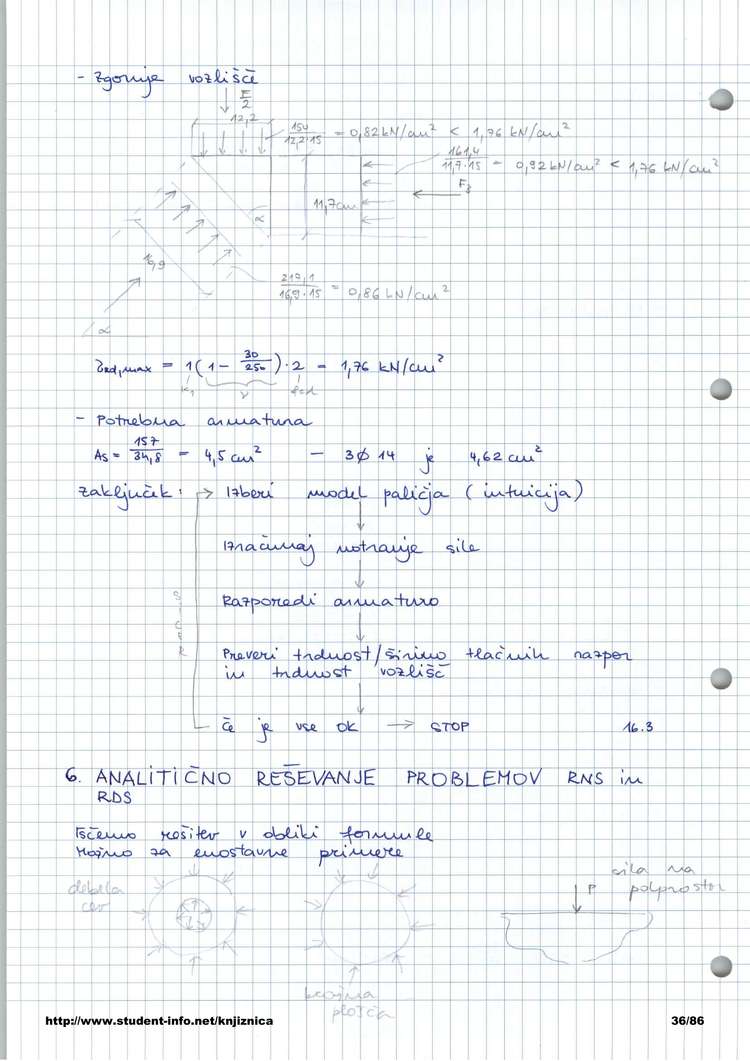 - Zgornje vozlišče
F/2
12,2
150/12,2·15 = 0,82 kN/cm² < 1,76 kN/cm²
161,4/11,7·15 = 0,92 kN/cm² < 1,76 kN/cm²
F₃
11,7cm
α
16,9
217,1/16,9·15 = 0,86 kN/cm²
α
σRd,max = 1(1 - 30/250)·2 = 1,76 kN/cm²
k₁ ν fcd
- Potrebna armatura
As = 157/34,8 = 4,5 cm² - 3ϕ14 je 4,62 cm²
zaključek: → Izberi model paličja (intuicija)
Izračunaj notranje sile
Razporedi armaturo
SICER
Preveri trdnost/širino tlačnih razpor
in trdnost vozlišč
Če je vse OK → STOP 16.3
6. ANALITIČNO REŠEVANJE PROBLEMOV RNS in
RDS
Iščemo rešitev v obliki formule
Možno za enostavne primere
debela
cev
sila na
polprostor
P
krožna
plošča
http://www.student-info.net/knjiznica 36/86